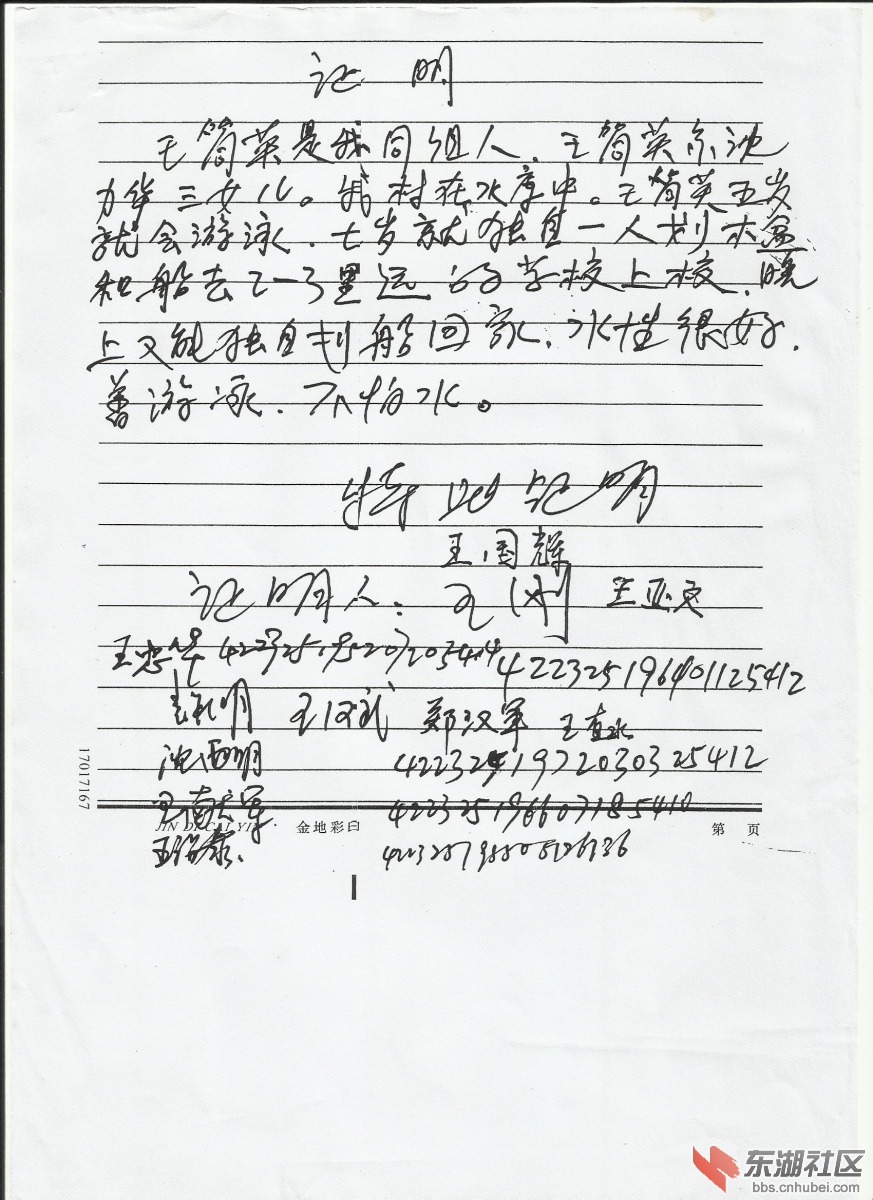 证 明
王筒英是我同组人.王筒英系沈
力华三女儿。我村在水库中。王筒英五岁
就会游泳.七岁就独自一人划木盆
和船去2-3里远的学校上校.晚
上又能独自划船回家.水性很好.
善游泳.不怕水。
特此证明
王国辉
证明人: 王刚 王亚文
王忠华
422325196401125412
明 王汉武 郑汉军 王直水
沈西明
军
17017167
JIN DI CAI YIN
金地彩印
第 页
东湖社区
bbs.cnhubei.com